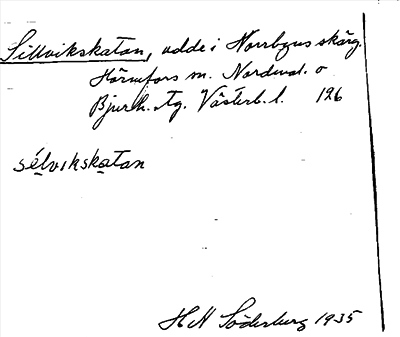 Sillvikskatan, udde i Norrbyns skärg.
Hörnefors m. Nordmal. o
Bjurh. tg. Västerb. l. 126
sélvikskatan
H N Söderberg 1935